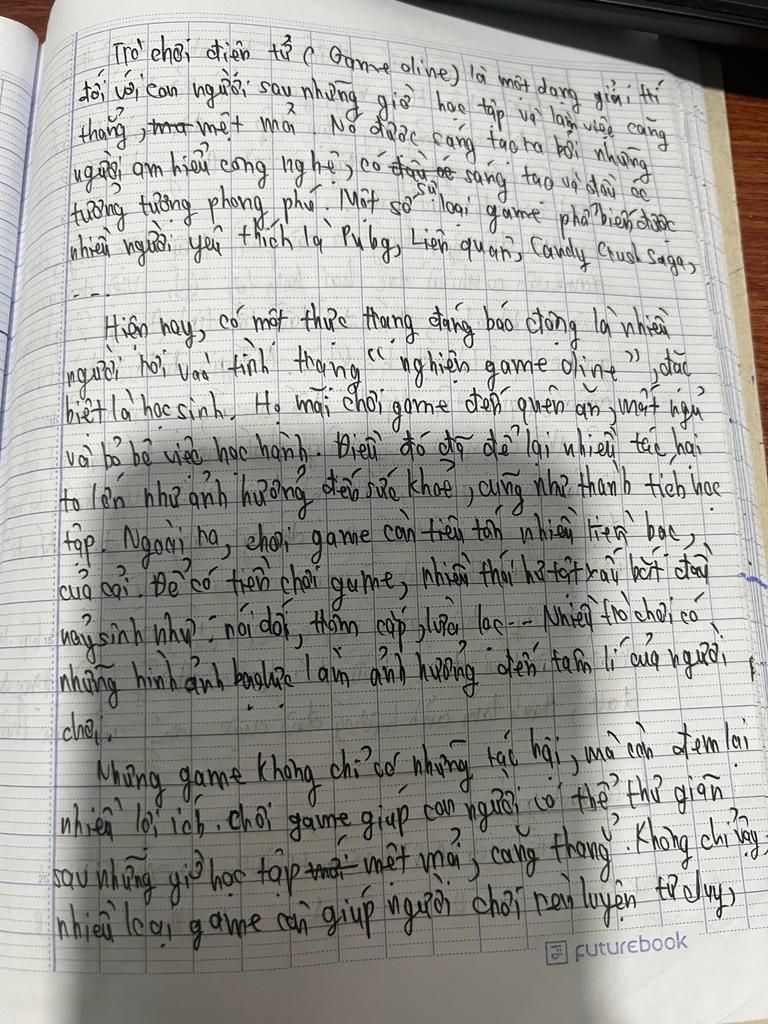 Trò chơi điện tử ( Game oline) là một dạng giải trí
đối với con người sau những giờ học tập và làm việc căng
thẳng, mệt mỏi. Nó được cáng tạo ra bởi những
người am hiểu công nghệ, có sáng tạo và đầu óc
tưởng tượng phong phú. Một số loại game phổ biến được
nhiều người yêu thích là Pubg, Liên quân, Candy Crush Saga,
...
Hiện nay, có một thực trạng đáng báo động là nhiều
người rơi vào tình trạng " nghiện game oline ", đặc
biệt là học sinh. Họ mải chơi game đến quên ăn, mất ngủ
và bỏ bê việc học hành. Điều đó đã để lại nhiều tác hại
to lớn như ảnh hưởng đến sức khoẻ, cũng như thành tích học
tập. Ngoài ra, chơi game còn tiêu tốn nhiều tiền bạc,
của cải. Để có tiền chơi game, nhiều thói hư tật xấu bắt đầu
nảy sinh như: nói dối, trộm cắp, lừa lọc... Nhiều trò chơi có
những hình ảnh bạo lực làm ảnh hưởng đến tâm lí của người
chơi.
Những game không chỉ có những tác hại, mà còn đem lại
nhiều lợi ích. chơi game giúp con người có thể thư giãn
sau những giờ học tập mệt mỏi, căng thẳng. Không chỉ vậy,
nhiều loại game còn giúp người chơi rèn luyện tư duy,
FUTUREBOOK